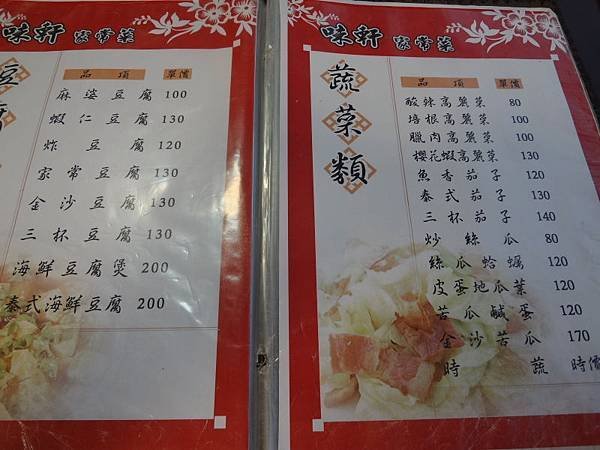 味軒 家常菜
豆腐
品項 單價
麻婆豆腐 100
蝦仁豆腐 130
炸豆腐 120
家常豆腐 130
金沙豆腐 130
三杯豆腐 130
海鮮豆腐煲 200
泰式海鮮豆腐 200
味軒 家常菜
蔬菜類
品項 單價
酸辣高麗菜 80
培根高麗菜 100
臘肉高麗菜 100
櫻花蝦高麗菜 130
魚香茄子 120
泰式茄子 130
三杯茄子 140
炒絲瓜 80
絲瓜蛤蠣 120
皮蛋地瓜葉 120
苦瓜鹹蛋 120
金沙苦瓜 170
時蔬 時價